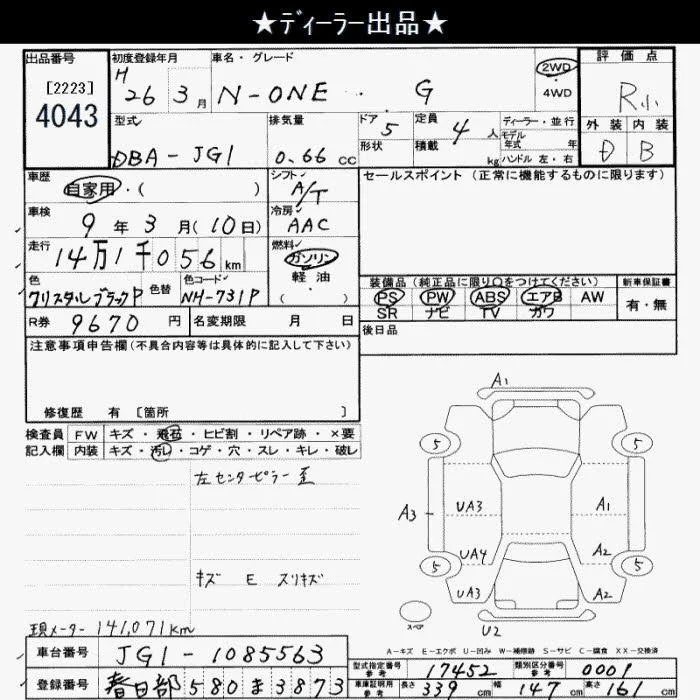 ★ディーラー出品★
出品番号
[2223]
4043
初度登録年月
H 26年 3月
車名・グレード
N-ONE ・ G
2WD
・
4WD
評価点
R小
外装 内装
D B
型式
DBA - JG1
排気量
0.66 cc
ドア 5
形状
定員 4 人
積載 kg
ディーラー・並行
モデル年式 年
ハンドル 左・右
車歴
自家用・( )
シフト
A/T
セールスポイント (正常に機能するものに限ります)
車検
9年 3月(10日)
冷房
AAC
走行
14万1千056 km
燃料
ガソリン
・
軽油
( )
色
クリスタルブラックP
色替
色コード
NH-731P
装備品 (純正品に限り○をつけてください)
PS PW ABS エアB AW
SR ナビ TV カワ
新車保証書
有・無
R券 9670 円
名変期限 月 日
後日品
注意事項申告欄(不具合内容等は具体的に記入して下さい)
修復歴 有 [箇所 ]
検査員 FW キズ・飛石・ヒビ割・リペア跡・×要
記入欄 内装 キズ・汚れ・コゲ・穴・スレ・キレ・破レ
左センターピラー歪
キズ E スリキズ
現メーター 141,071km
A1
5 5
A3 UA3 A1
UA4 A2
5 5
UA3 A2
スペア
U2
A-キズ E-エクボ U-凹み W-補修跡 S-サビ C-腐食 XX-交換済
車台番号 JG1-1085563
登録番号 春日部 580 ま 3873
型式指定番号 参考 17452
類別区分番号 参考 0001
車庫証明用 参考 長さ 339 cm 幅 147 cm 高さ 161 cm